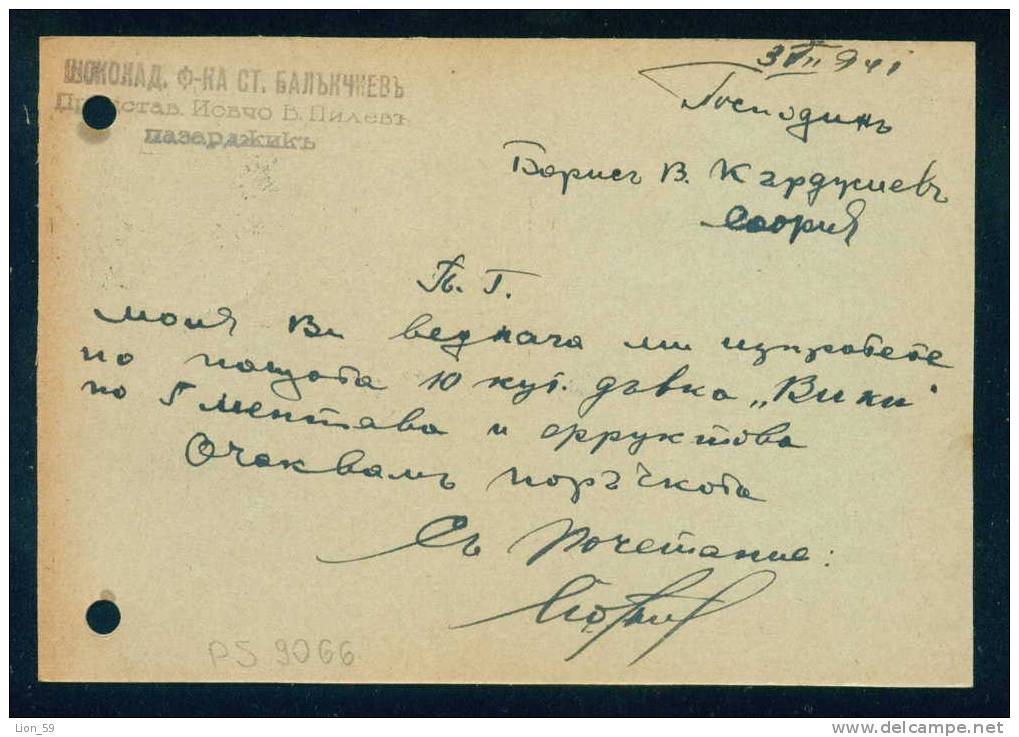 ШОКОЛАД. Ф-КА СТ. БАЛЪКЧИЕВЪ
Представ. Иовчо В. Пилевъ
Пазарджикъ
3 VII 941
Господинъ
Борисъ В. Кърджиевъ
София
П. Г.
моля Ви веднага ми изпратете
по пощата 10 кут. дъвка „Вики"
по 5 ментава и фруктова
Очаквамъ поръчката
Съ Почетание:
PS 9066
Lion_59
www.delcampe.net